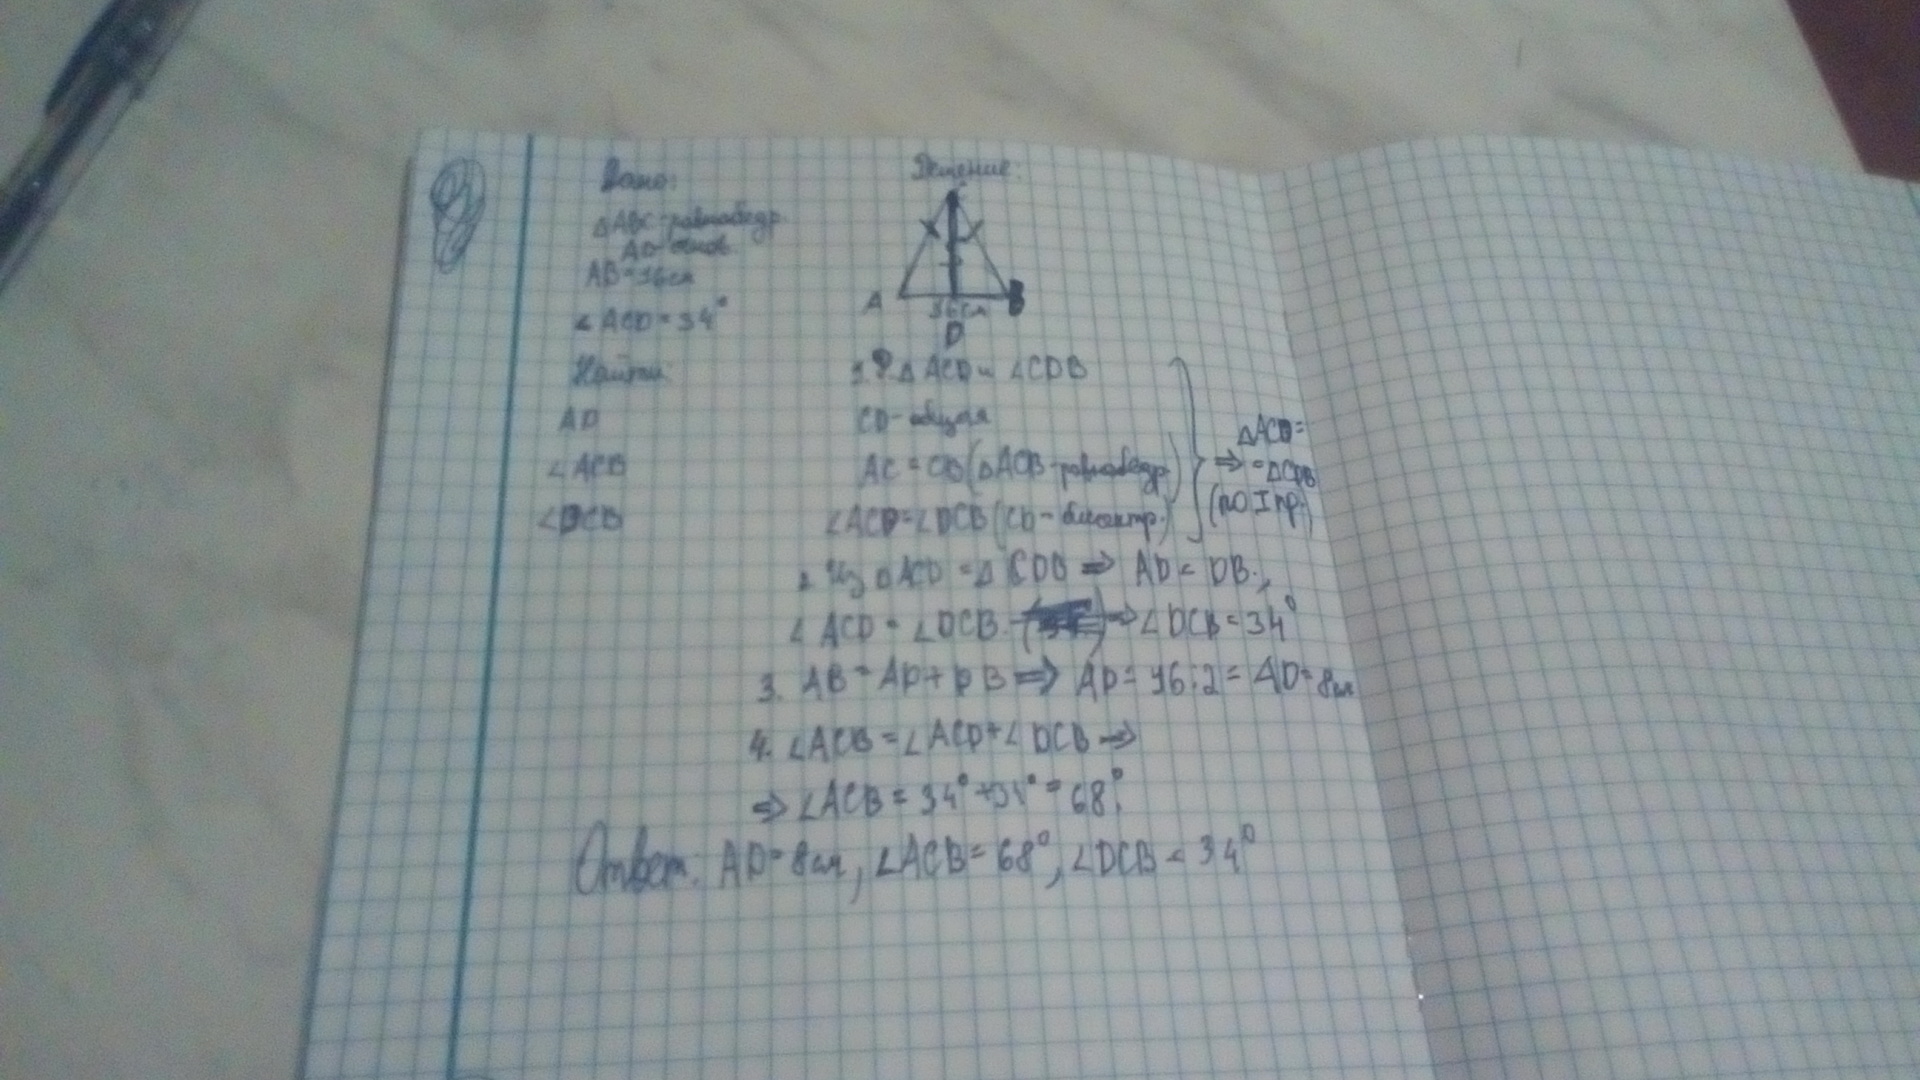 Дано:
△ABC-равнобедр.
AB=16см
∠ACD=34°
Найти:
AD
∠ACB
∠DCB
Решение:
C
A
B
16см
D
1. P. △ACD и ∠CDB
CD-общая
AC=CB(△ACB-равнобедр.)
∠ACD=∠DCB(CD-биссектр.)
⇒ △ACD=
=△CDB
(по I пр.)
2. Из △ACD=△CDB ⇒ AD=DB.,
∠ACD=∠DCB ⇒ ∠DCB=34°
3. AB=AD+DB ⇒ AD=16:2= AD=8см
4. ∠ACB=∠ACD+∠DCB ⇒
⇒ ∠ACB=34°+34°=68°.
Ответ: AD=8см, ∠ACB=68°, ∠DCB=34°